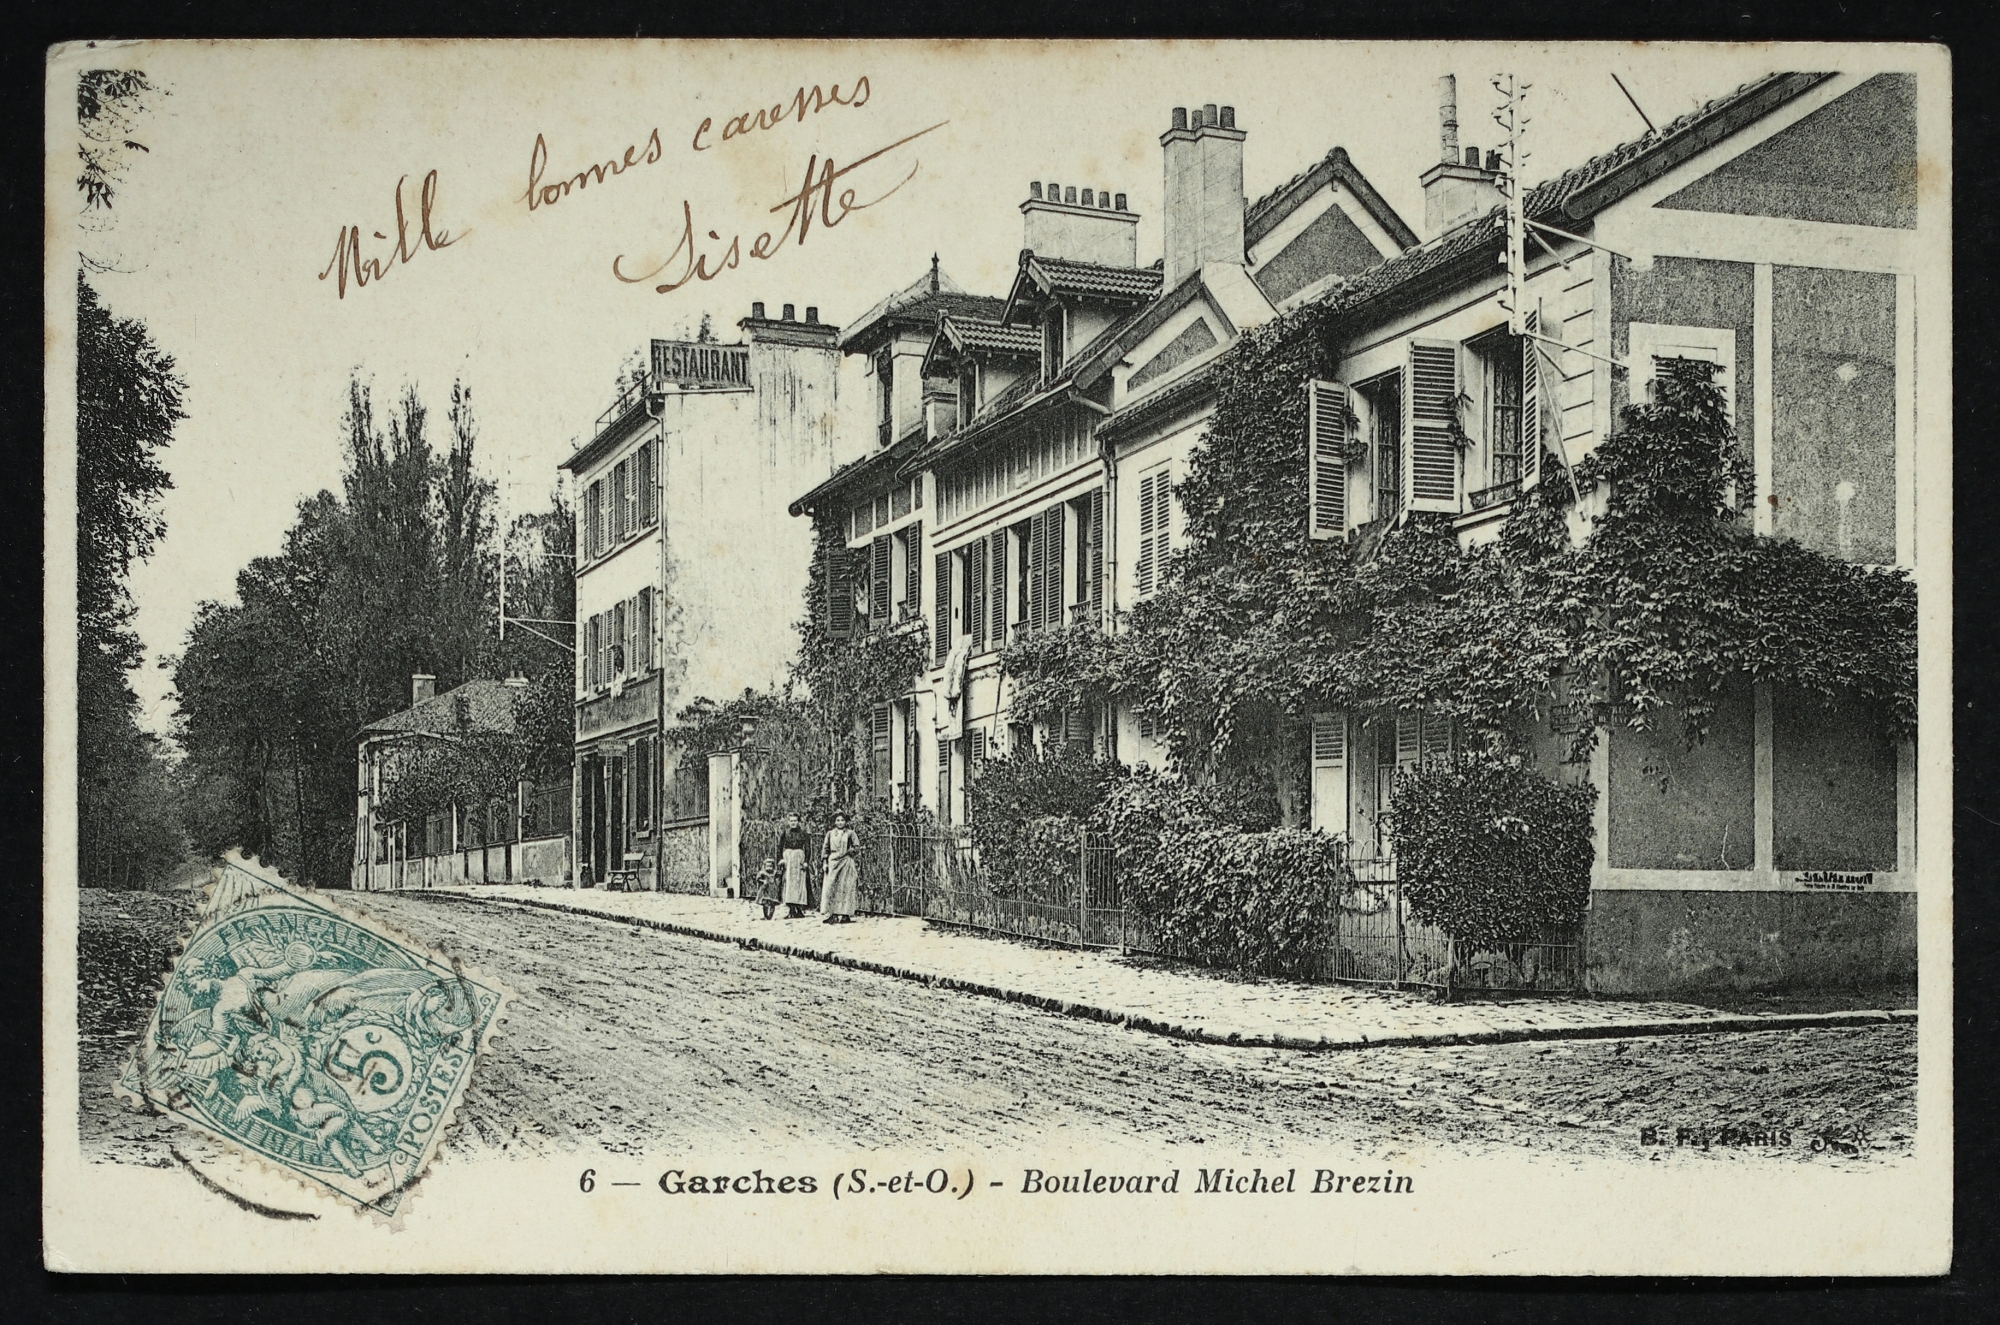 Mille bonnes caresses
Lisette
RESTAURANT
FRANÇAISE
5c
POSTES
B. F., PARIS
6 — Garches (S.-et-O.) - Boulevard Michel Brezin